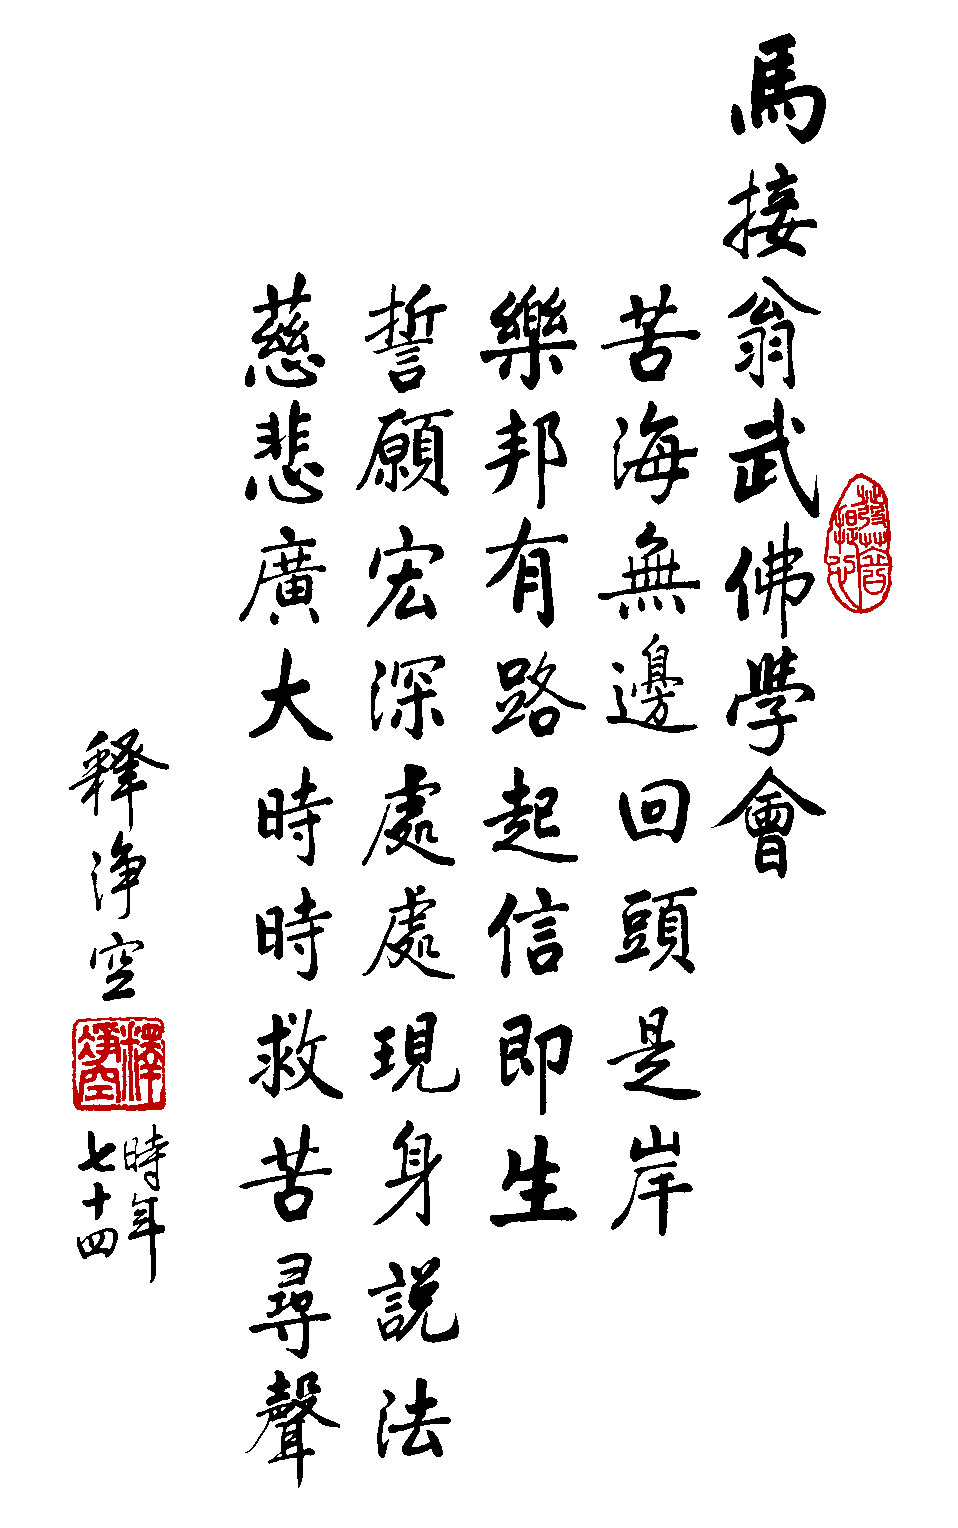 馬接翁武佛學會
苦海無邊回頭是岸
樂邦有路起信即生
誓願宏深處處現身説法
慈悲廣大時時救苦尋聲
釋淨空
釋淨空
時年
七十四